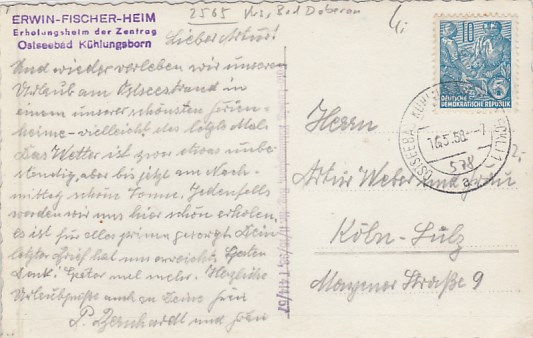 2565 Krs. Bad Doberan
ERWIN-FISCHER-HEIM
Erholungsheim der Zentrag
Ostseebad Kühlungsborn
Lieber Artur!
Und wieder verleben wir unseren
Urlaub am Ostseestrand in
einem unserer schönsten Ferien-
heime - vielleicht das letzte Mal.
Das Wetter ist zwar etwas unbe-
ständig, aber bis jetzt am Nach-
mittag schön Sonne. Jedenfalls
werden wir uns hier schön erholen,
es ist für alles prima gesorgt. Dein
letzter Brief hat uns erreicht. Besten
Dank! Später mal mehr. Herzliche
Urlaubsgrüße auch an Deine Frau
P. Bernhardt und Frau
10
DEUTSCHE
DEMOKRATISCHE REPUBLIK
OSTSEEBAD
16.5.58.-7
578
a
Herrn
Artur Weber und Frau
Köln-Sülz
Manzener Straße 9